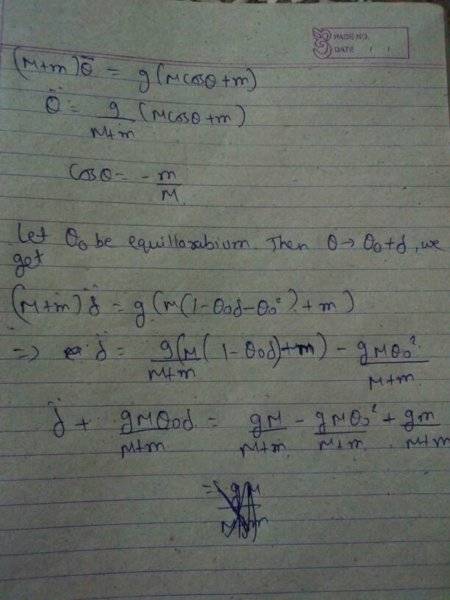 PAGE NO.
DATE / /
(M+m)θ̈ = g(Mcosθ+m)
θ̈ = g/(M+m) (Mcosθ+m)
Cosθ = -m/M
Let θ₀ be equillarabium. Then θ → θ₀+δ, we
get
(M+m)δ̈ = g(M(1-θ₀δ-θ₀²)+m)
=> δ̈ = g/(M+m) (M(1-θ₀δ)+m) - gMθ₀²/(M+m)
δ̈ + gMθ₀δ/(M+m) = gM/(M+m) - gMθ₀²/(M+m) + gm/(M+m)
=